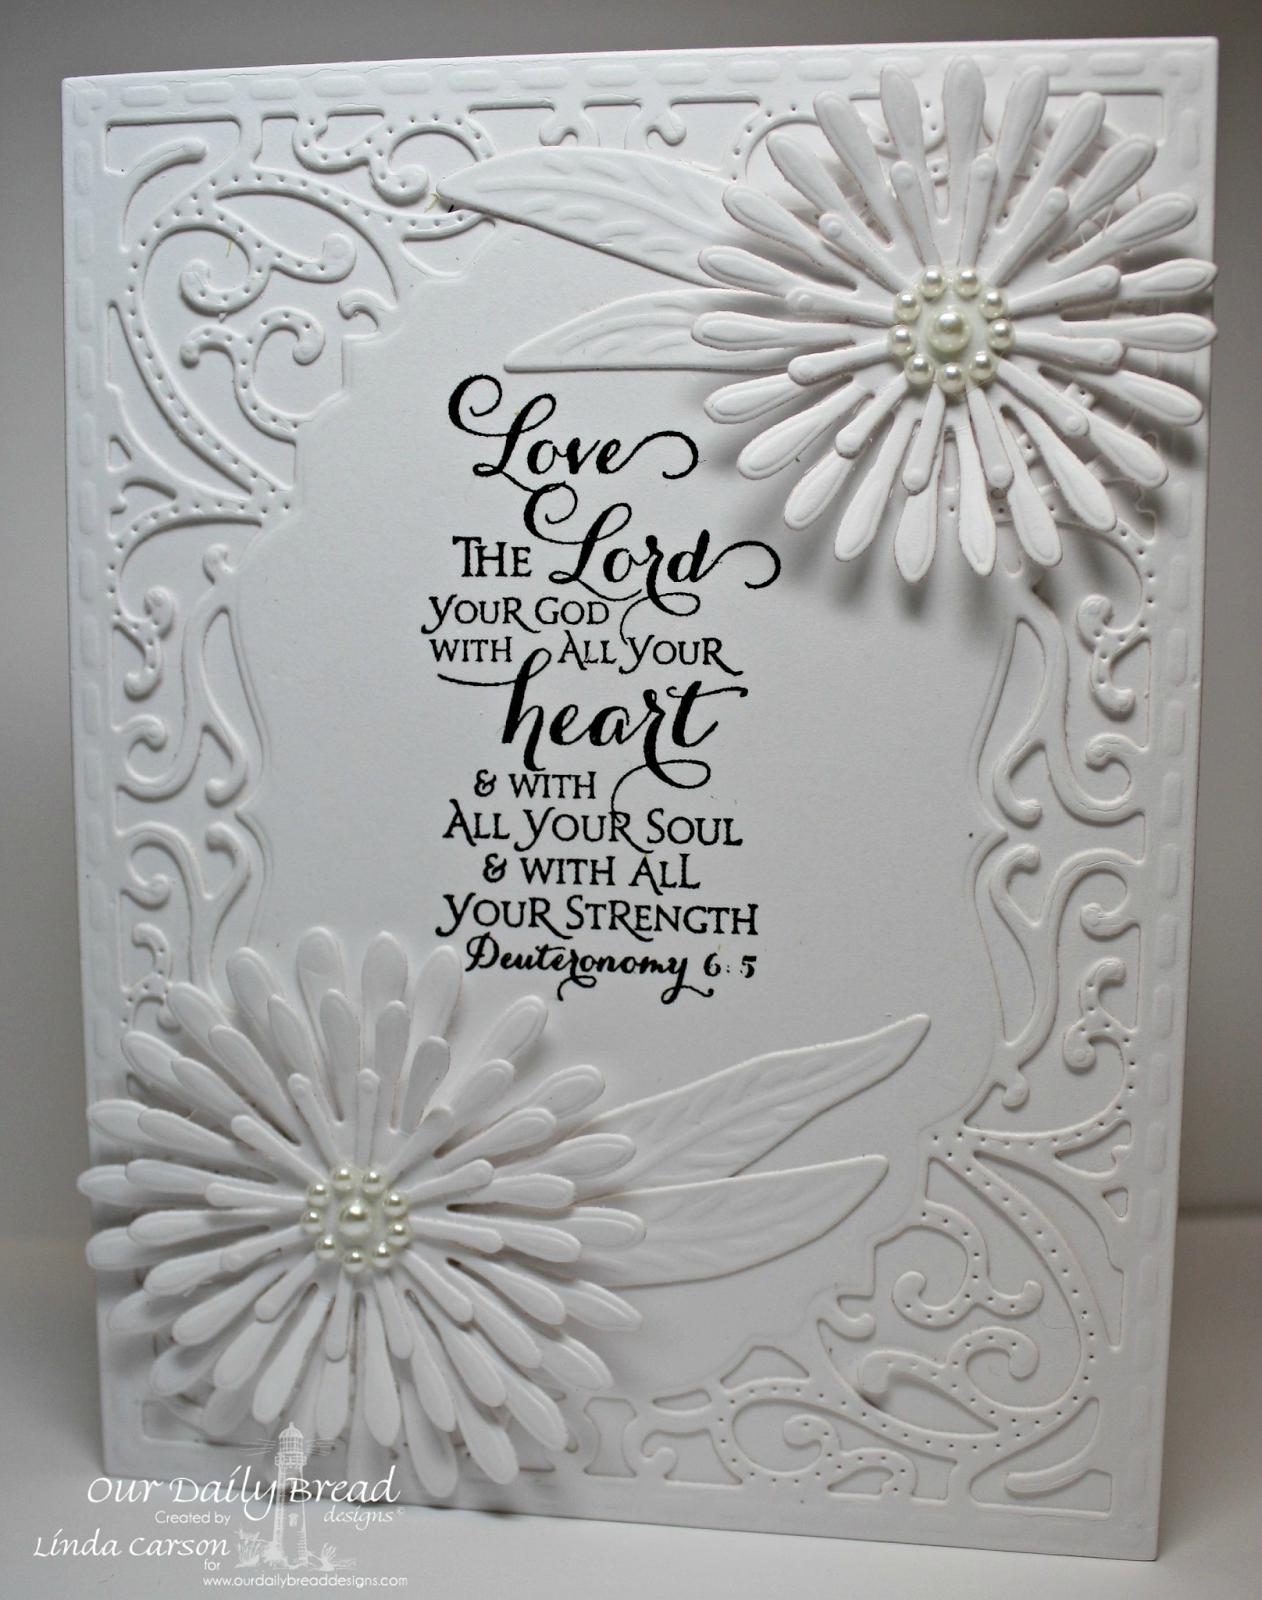 Love
THE Lord
YOUR GOD
WITH ALL YOUR
heart
& WITH
ALL YOUR SOUL
& WITH ALL
YOUR STRENGTH
Deuteronomy 6:5
Our Daily Bread
designs©
Created by
Linda Carson
for
www.ourdailybreaddesigns.com